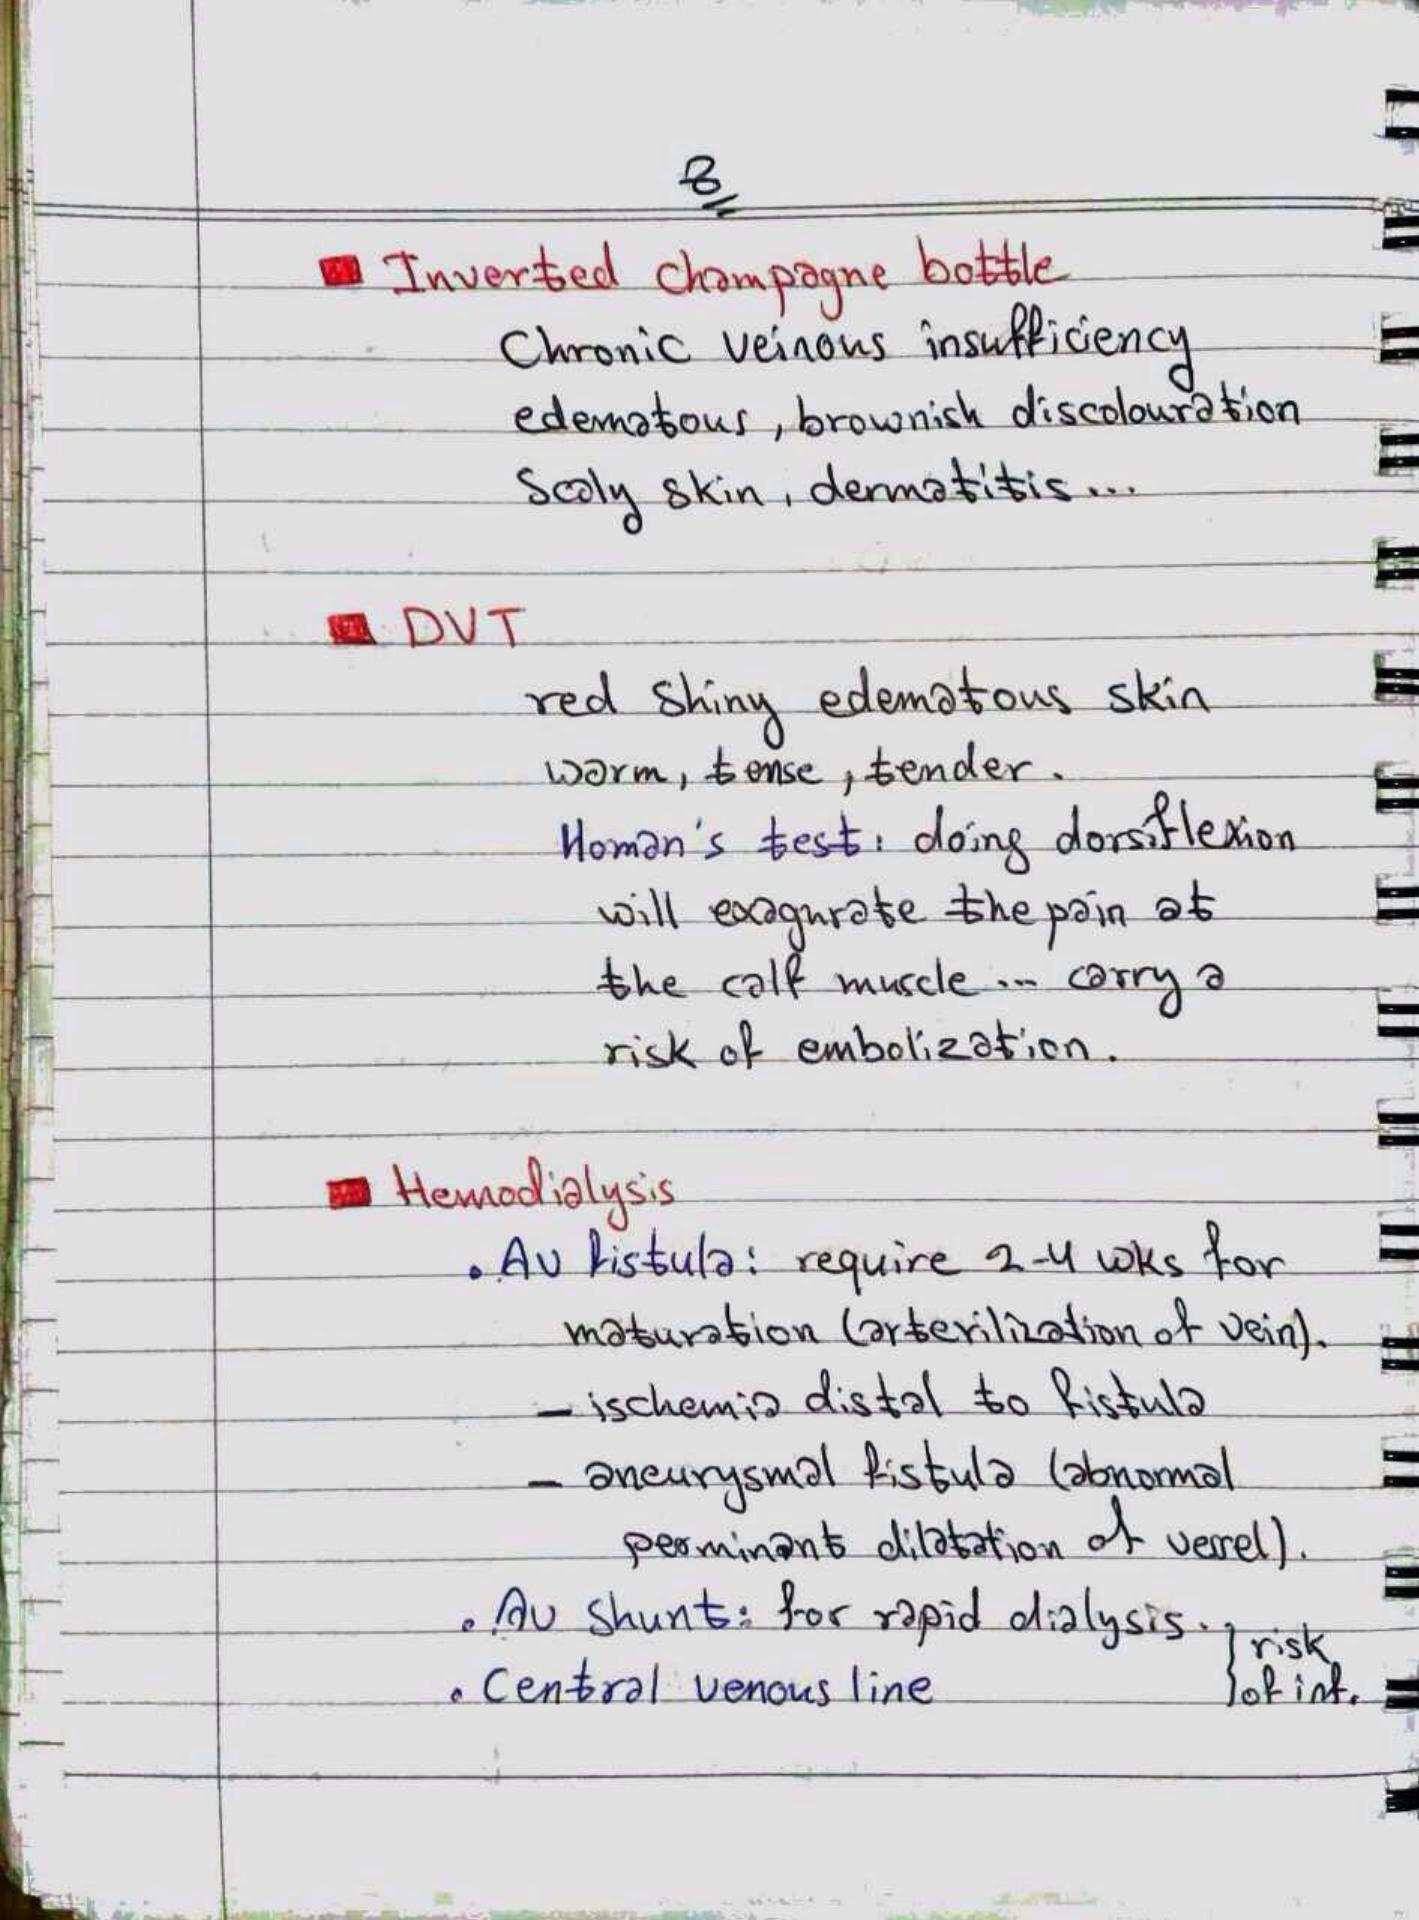 8
Inverted champagne bottle
Chronic veinous insufficiency
edematous, brownish discolouration
Scaly skin, dermatitis...
DVT
red shiny edematous skin
warm, tense, tender.
Homan's test: doing dorsiflexion
will exagurate the pain at
the calf muscle ... carry a
risk of embolization.
Hemodialysis
• AV fistula: require 2-4 wks for
maturation (arterilization of vein).
- ischemia distal to fistula
- aneurysmal fistula (abnormal
perminant dilatation of vessel).
• AV shunt: for rapid dialysis.
• Central venous line
} risk
of inf.